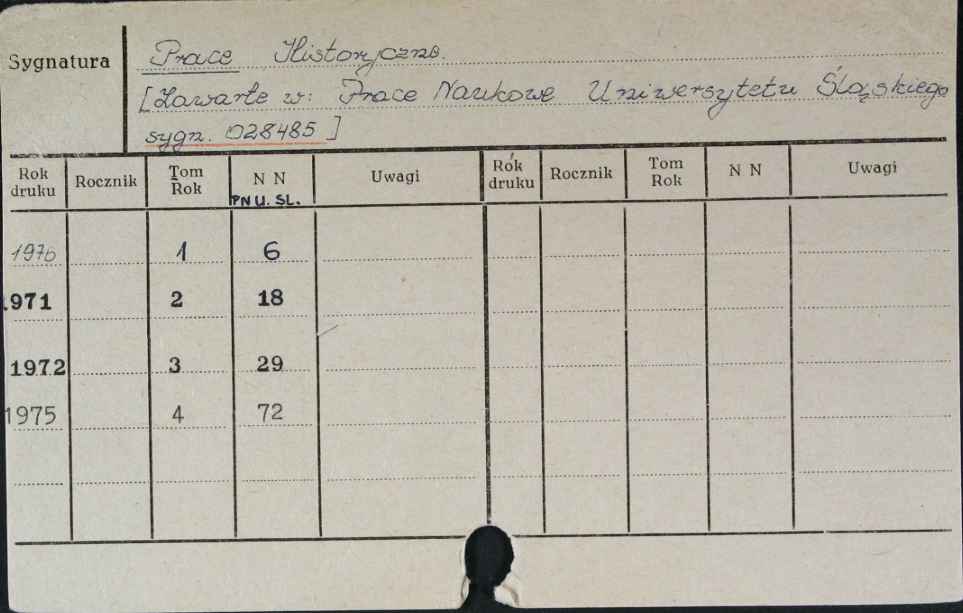 Sygnatura
Prace Historyczne.
[Zawarte w: Prace Naukowe Uniwersytetu Śląskiego
sygn. 028485 ]
Rok druku Rocznik Tom Rok N N Uwagi Rok druku Rocznik Tom Rok N N Uwagi
PN U. SL.
1970 1 6
1971 2 18
1972 3 29
1975 4 72